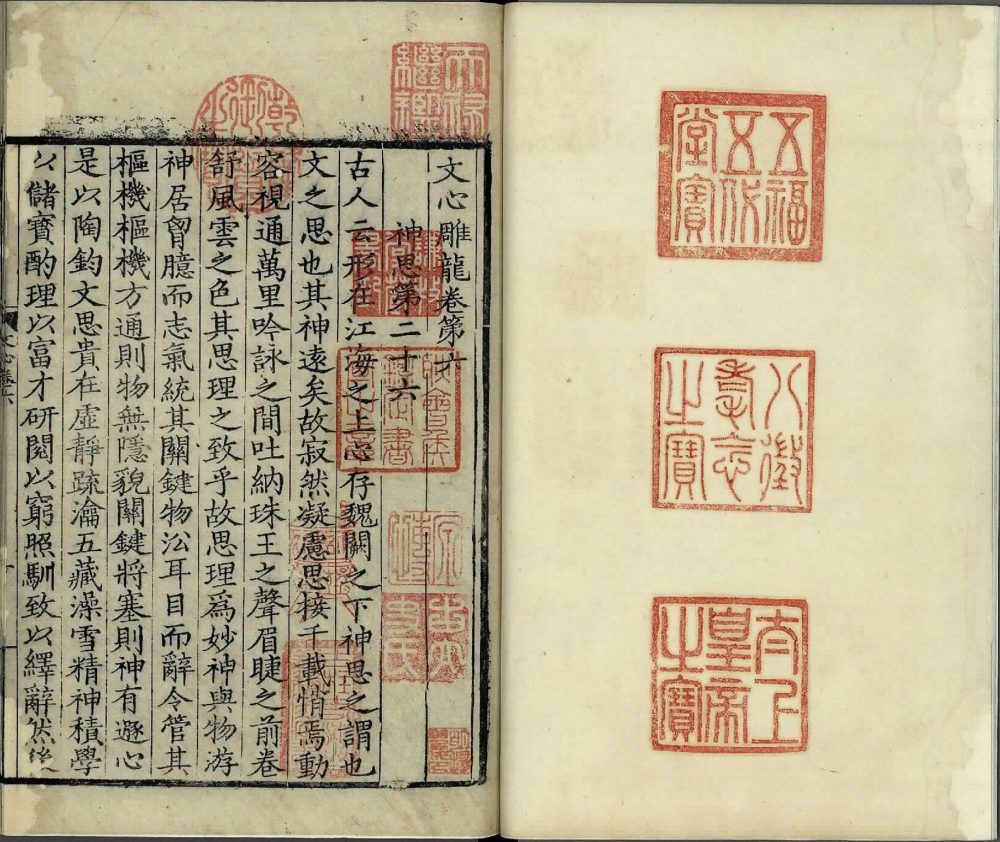 五福
五代
堂寶
八徵
耄念
之寶
太上
皇帝
之寶
天祿
繼鑑
乾隆
御覽
之寶
文心雕龍卷第六
神思第二十六
古人云形在江海之上心存魏闕之下神思之謂也
文之思也其神遠矣故寂然凝慮思接千載悄焉動
容視通萬里吟詠之間吐納珠王之聲眉睫之前卷
舒風雲之色其思理之致乎故思理爲妙神與物游
神居胷臆而志氣統其關鍵物㳂耳目而辭令管其
樞機樞機方通則物無隱貌關鍵將塞則神有遯心
是以陶鈞文思貴在虛靜疏瀹五藏澡雪精神積學
以儲寳酌理以富才研閱以窮照馴致以繹辭然後